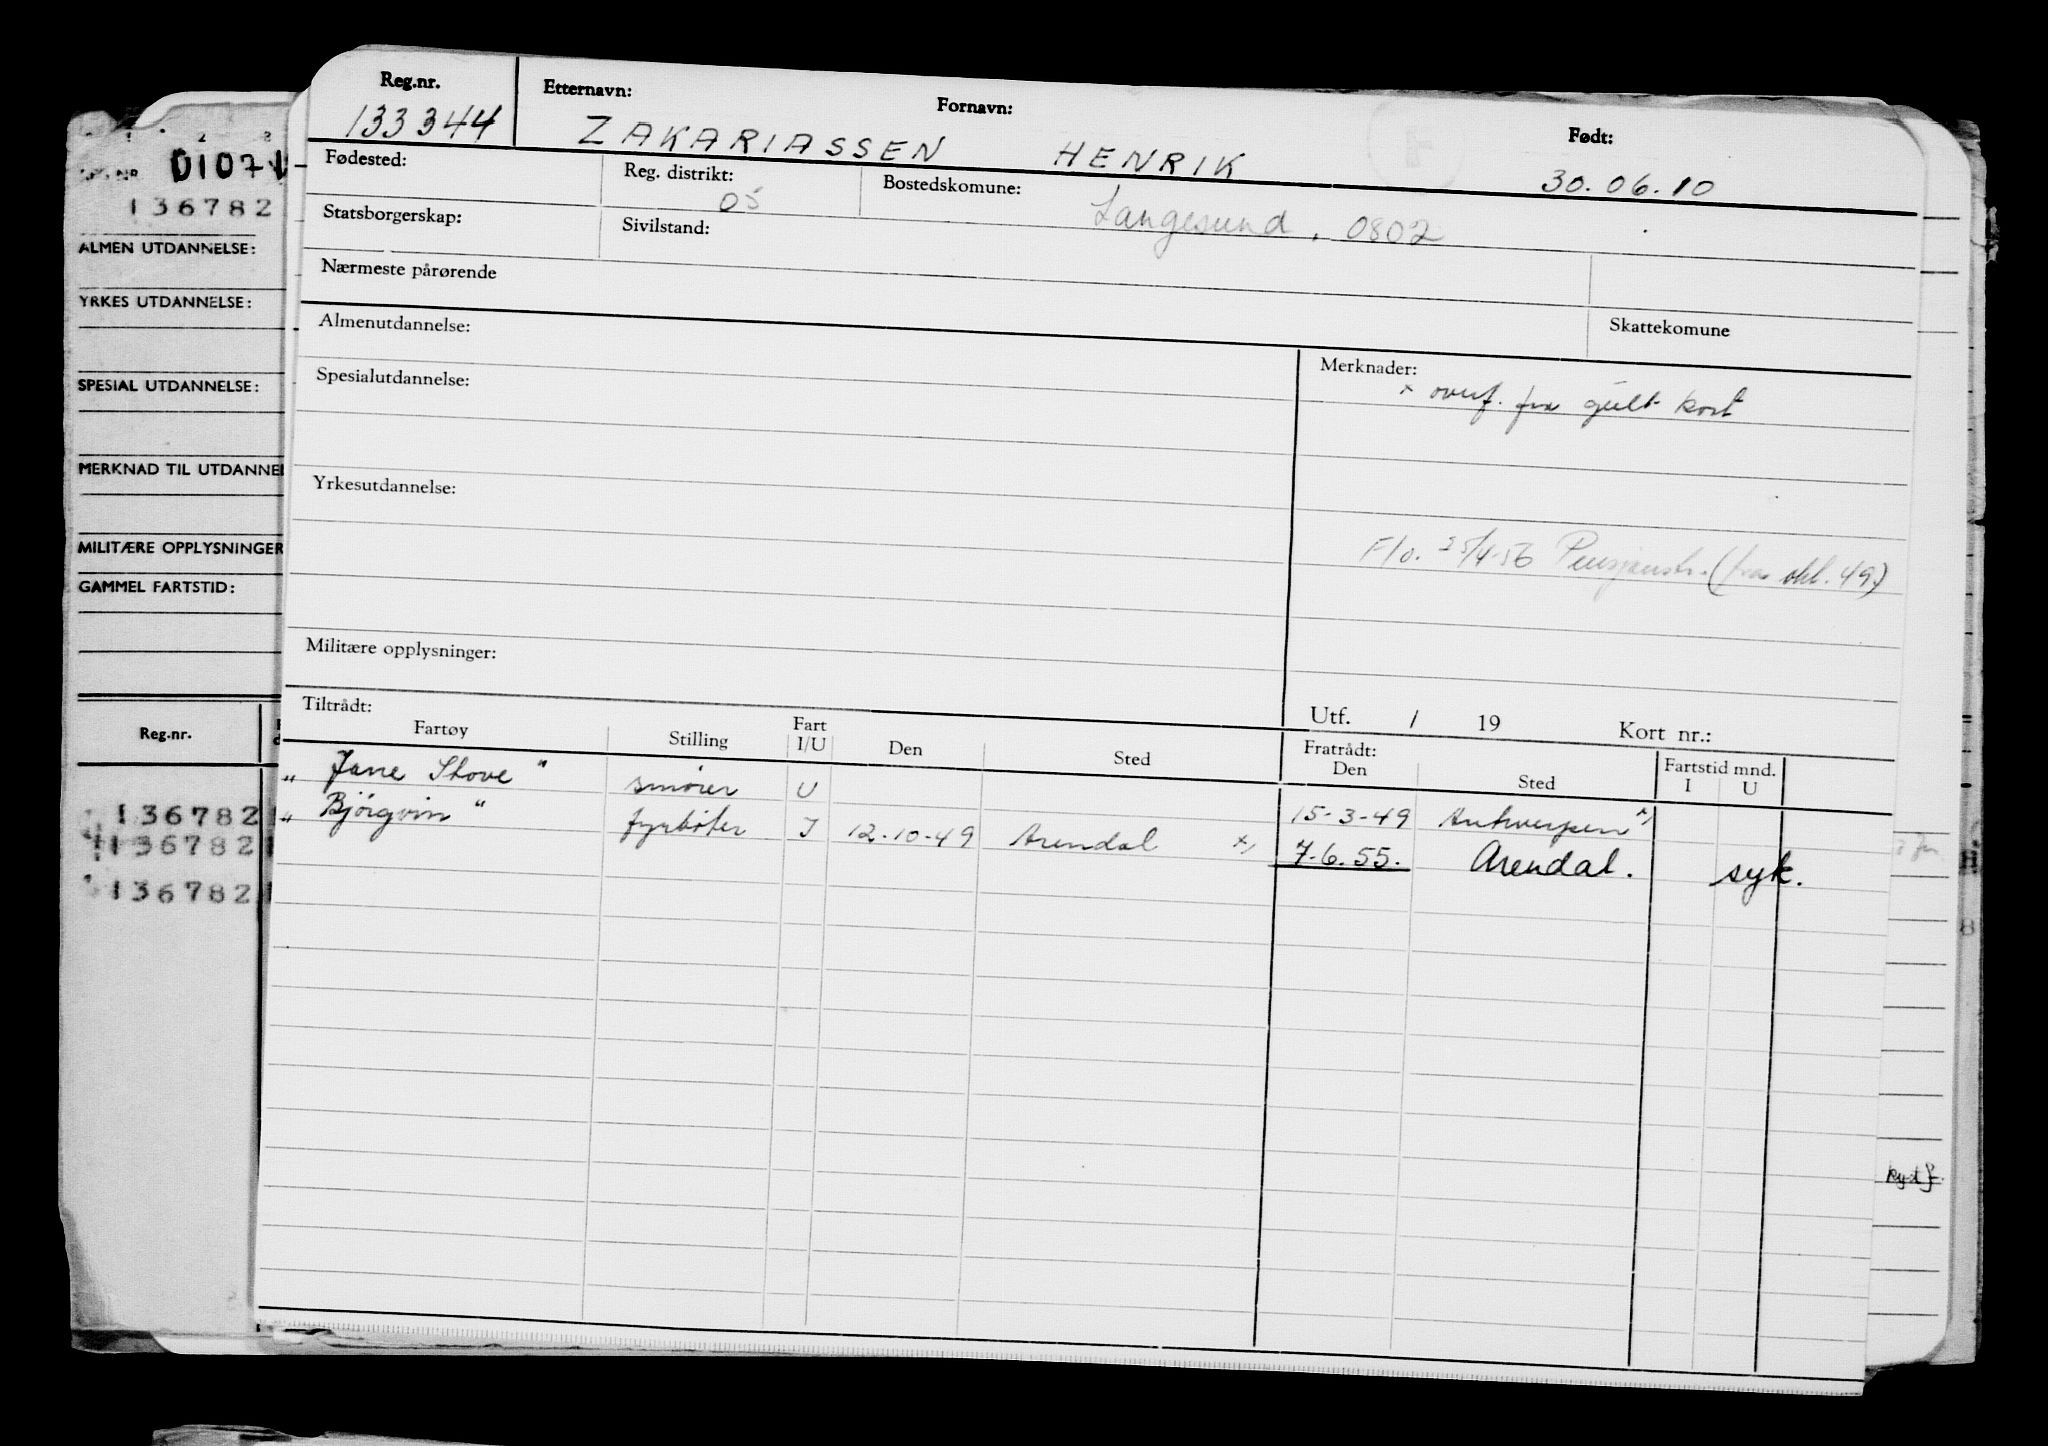 Reg.nr. Etternavn: Fornavn: Født:
133344 ZAKARIASSEN HENRIK 30.06.10
Fødested: Reg. distrikt: 05 Bostedskomune: Langesund, 0802
Statsborgerskap: Sivilstand:
Nærmeste pårørende
Skattekomune
Almenutdannelse:
Merknader:
x overf. fra gult kort
Spesialutdannelse:
Yrkesutdannelse:
F/o. 25/4-56 Pensjonstr. (fra okt. 49)
Militære opplysninger:
Utf. / 19 Kort nr.:
Tiltrådt: Fratrådt: Fartstid mnd.
Fartøy Stilling Fart I/U Den Sted Den Sted I U
" Jane Stove " smører U 15-3-49 Antwerpen x)
" Bjørgvin " fyrbøter I 12-10-49 Arendal x) 7.6.55. Arendal. syk.
1 2 3
136782
ALMEN UTDANNELSE:
YRKES UTDANNELSE:
SPESIAL UTDANNELSE:
MERKNAD TIL UTDANNEL
MILITÆRE OPPLYSNINGER
GAMMEL FARTSTID:
Reg.nr.
136782
136782
136782
H
8